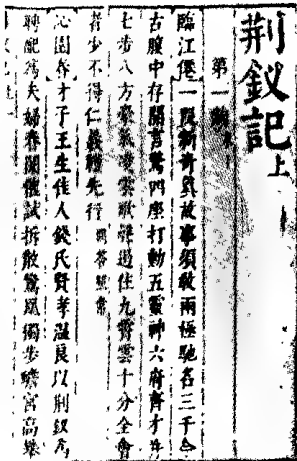 荆釵記上
第一齣
臨江僊一段新奇真故事須教兩極馳名三千今
古腹中存開言驚四座打動五靈神六府齊才并
七步八方豪氣凌雲歌聲遏住九霄雲十分全會
者少不得仁義禮先行 問荅照常
沁園春才子王生佳人錢氏賢孝温良以荆釵為
聘配為夫婦春闈催試拆散鴛鴦獨步蟾宮高攀